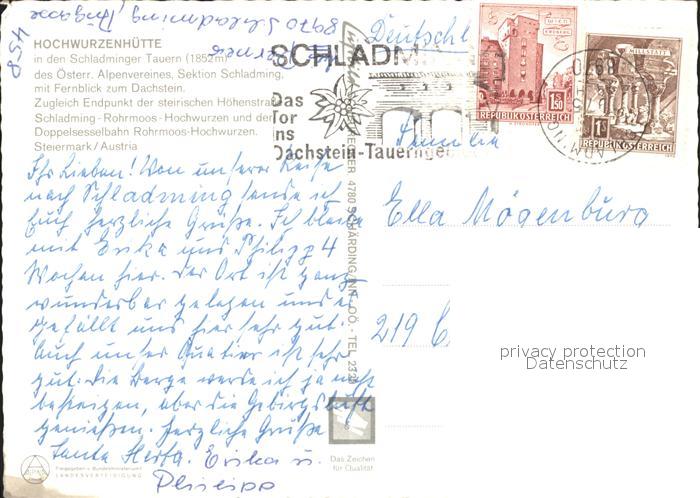 8970 Schladming
458
HOCHWURZENHÜTTE
in den Schladminger Tauern (1852m)
des Österr. Alpenvereines, Sektion Schladming,
mit Fernblick zum Dachstein.
Zugleich Endpunkt der steirischen Höhenstraße
Schladming-Rohrmoos-Hochwurzen und der
Doppelsesselbahn Rohrmoos-Hochwurzen.
Steiermark/Austria
Ihr Lieben! Von unserer Reise
nach Schladming sende ich
Euch herzliche Grüße. Ich bleibe
mit Erika und Philipp 4
Wochen hier. Der Ort ist ganz
wunderbar gelegen und es
gefällt uns hier sehr gut.
Auch unser Quatier ist sehr
gut. Die Berge werde ich ja nicht
besteigen, aber die Gebirgsluft
genießen. Herzliche Grüße
Tante Herta. Erika u.
Philipp
Freigegeben v. Bundesministerium f.
LANDESVERTEIDIGUNG
SCHLADM
Das
Tor
ins
Dachstein-Tauerngeb
4780 SCHÄRDING/INN, OÖ. - TEL. 232
Das Zeichen
für Qualität
Deutschl
WIEN
ERDBERG
1.50
REPUBLIK ÖSTERREICH
MILLSTATT
1S
REPUBLIK ÖSTERREICH
8970
Familie
Ella Mögenburg
219
privacy protection
Datenschutz